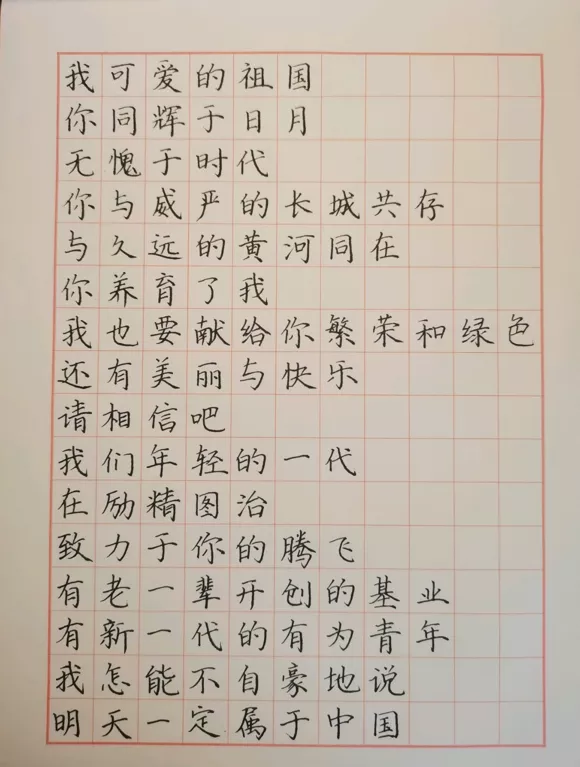 我可爱的祖国
你同辉于日月
无愧于时代
你与威严的长城共存
与久远的黄河同在
你养育了我
我也要献给你繁荣和绿色
还有美丽与快乐
请相信吧
我们年轻的一代
在励精图治
致力于你的腾飞
有老一辈开创的基业
有新一代的有为青年
我怎能不自豪地说
明天一定属于中国